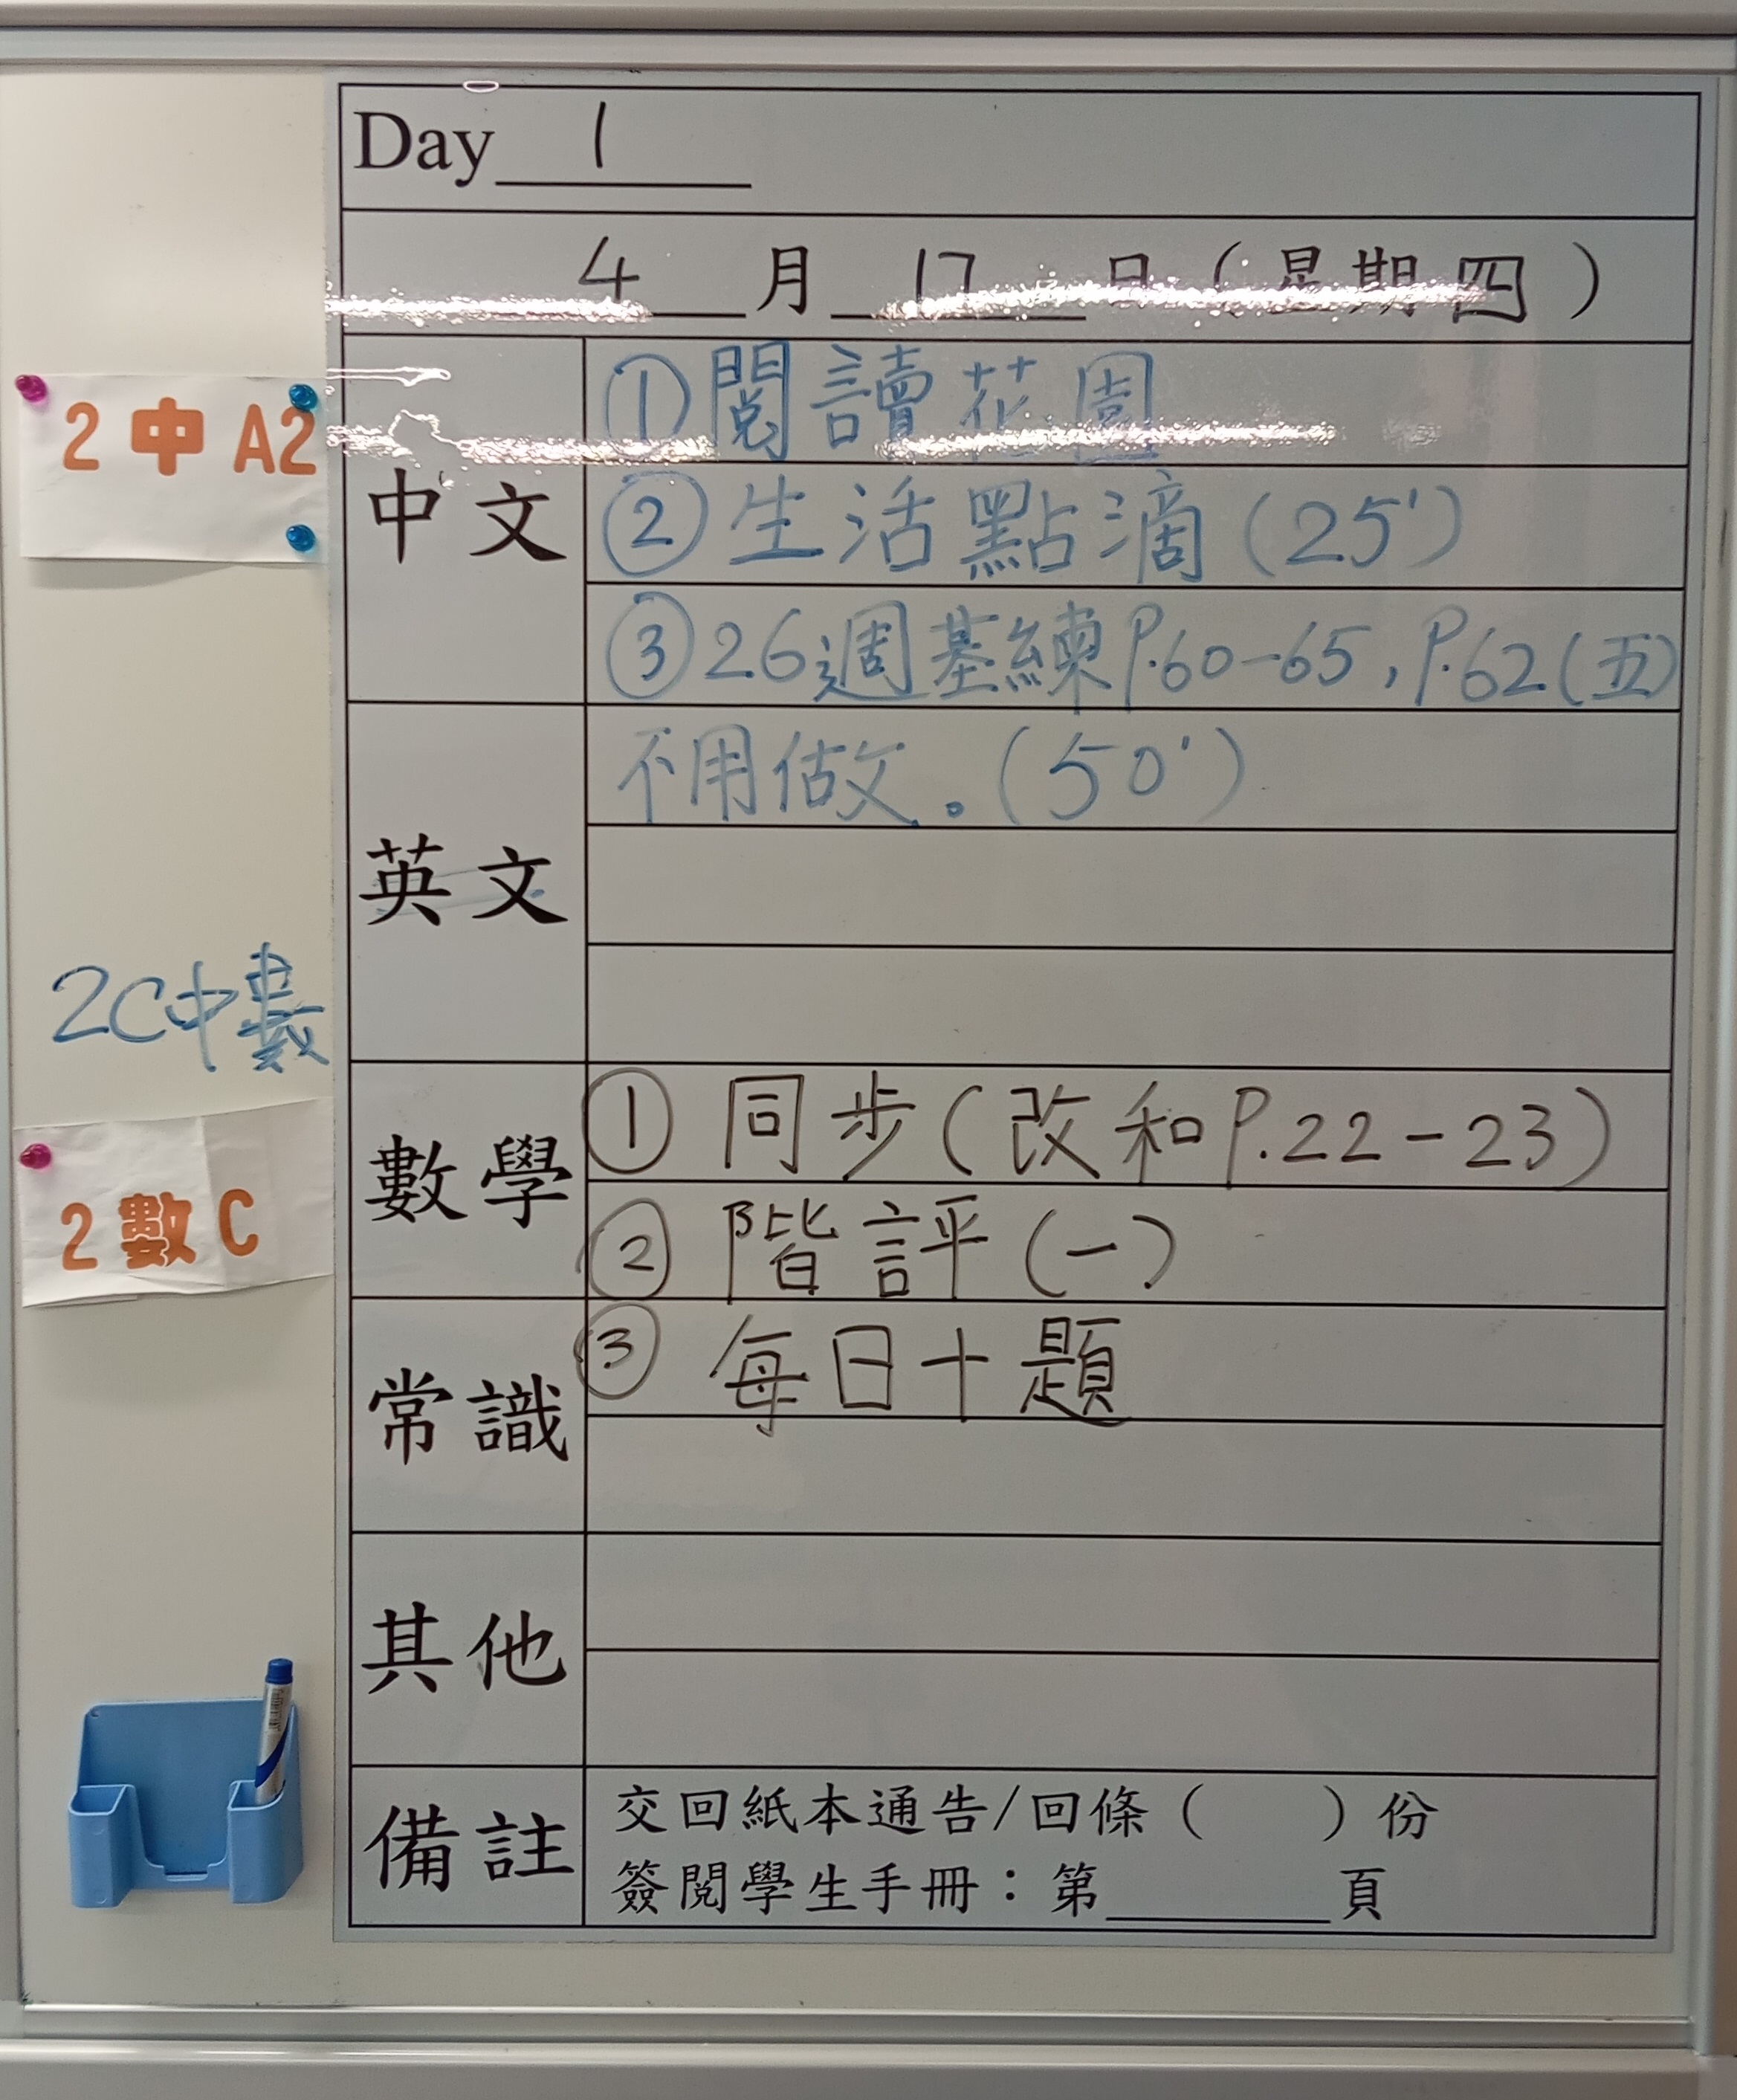 Day 1
4 月 17 日 ( 星期 四 )
2 中 A2
中文
①閱讀花園
②生活點滴(25')
③26週基練P.60-65,P.62(五)
英文
不用做。(50')
2C中數
2 數 C
數學
① 同步(改和P.22-23)
② 階評(一)
常識
③ 每日十題
其他
備註
交回紙本通告/回條( )份
簽閱學生手冊:第 頁